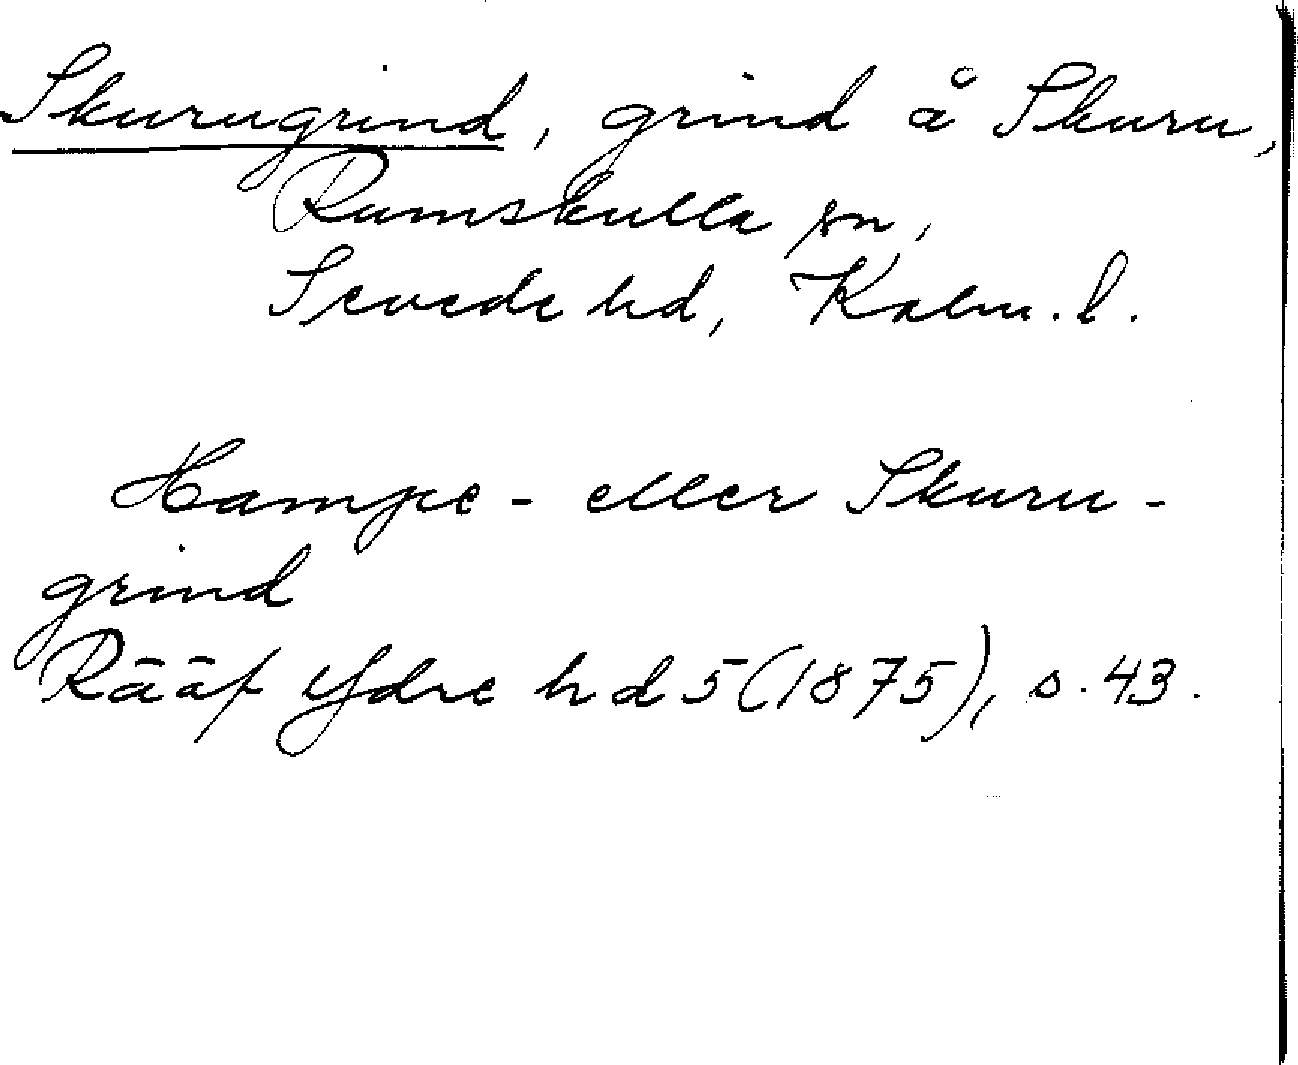 Skurugrind, grind å Skuru,
Rumskulla sn,
Sevede hd, Kalm. l.
Hampe- eller Skuru-
grind
Rääf Ydre hd 5 (1875), s. 43.